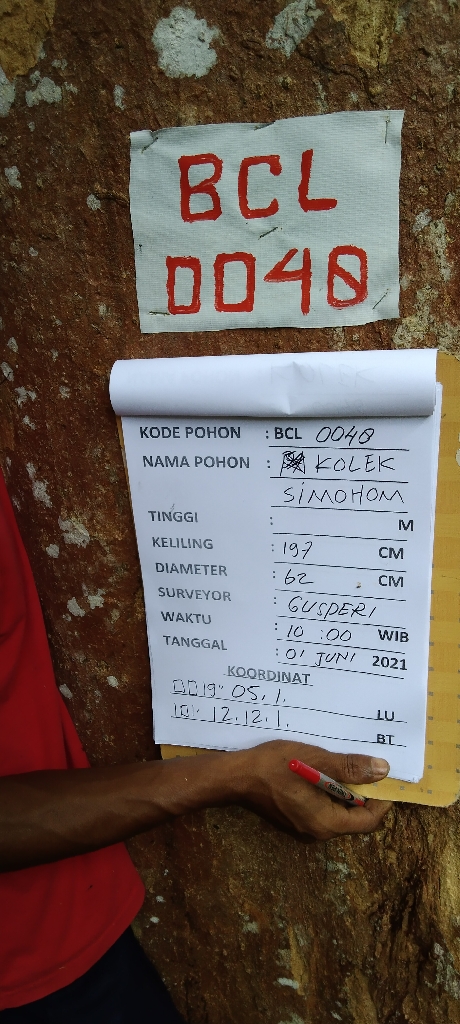 BCL
0040
KODE POHON : BCL 0040
NAMA POHON : KOLEK
SIMOHOM
TINGGI : M
KELILING : 197 CM
DIAMETER : 62 CM
SURVEYOR : GUSPERI
WAKTU : 10:00 WIB
TANGGAL : 01 JUNI 2021
KOORDINAT
0019° 05.1. LU
101° 12.12.1. BT